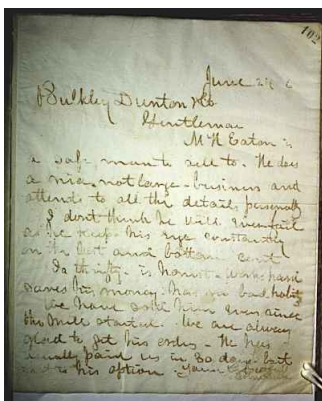 102
June 29
Bulkley Dunton & Co
Gentlemen
M N Eaton is
a safe man to sell to. He does
a nice - not large - business and
attends to all the details personally
I don't think he will ever fail
as he keeps his eye constantly
on the last and bottom cent
Is thrifty - is honest - works hard
saves his money - has no bad habits
We have sold him ever since
the mill started. We are always
glad to get his orders. He has
usually paid us in 30 days but
at his option. Yours